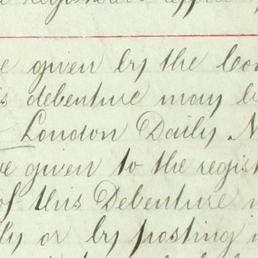 e given by the
s debenture may b
London Daily N
ve given to the regist
of this Debenture
ly or by posting i